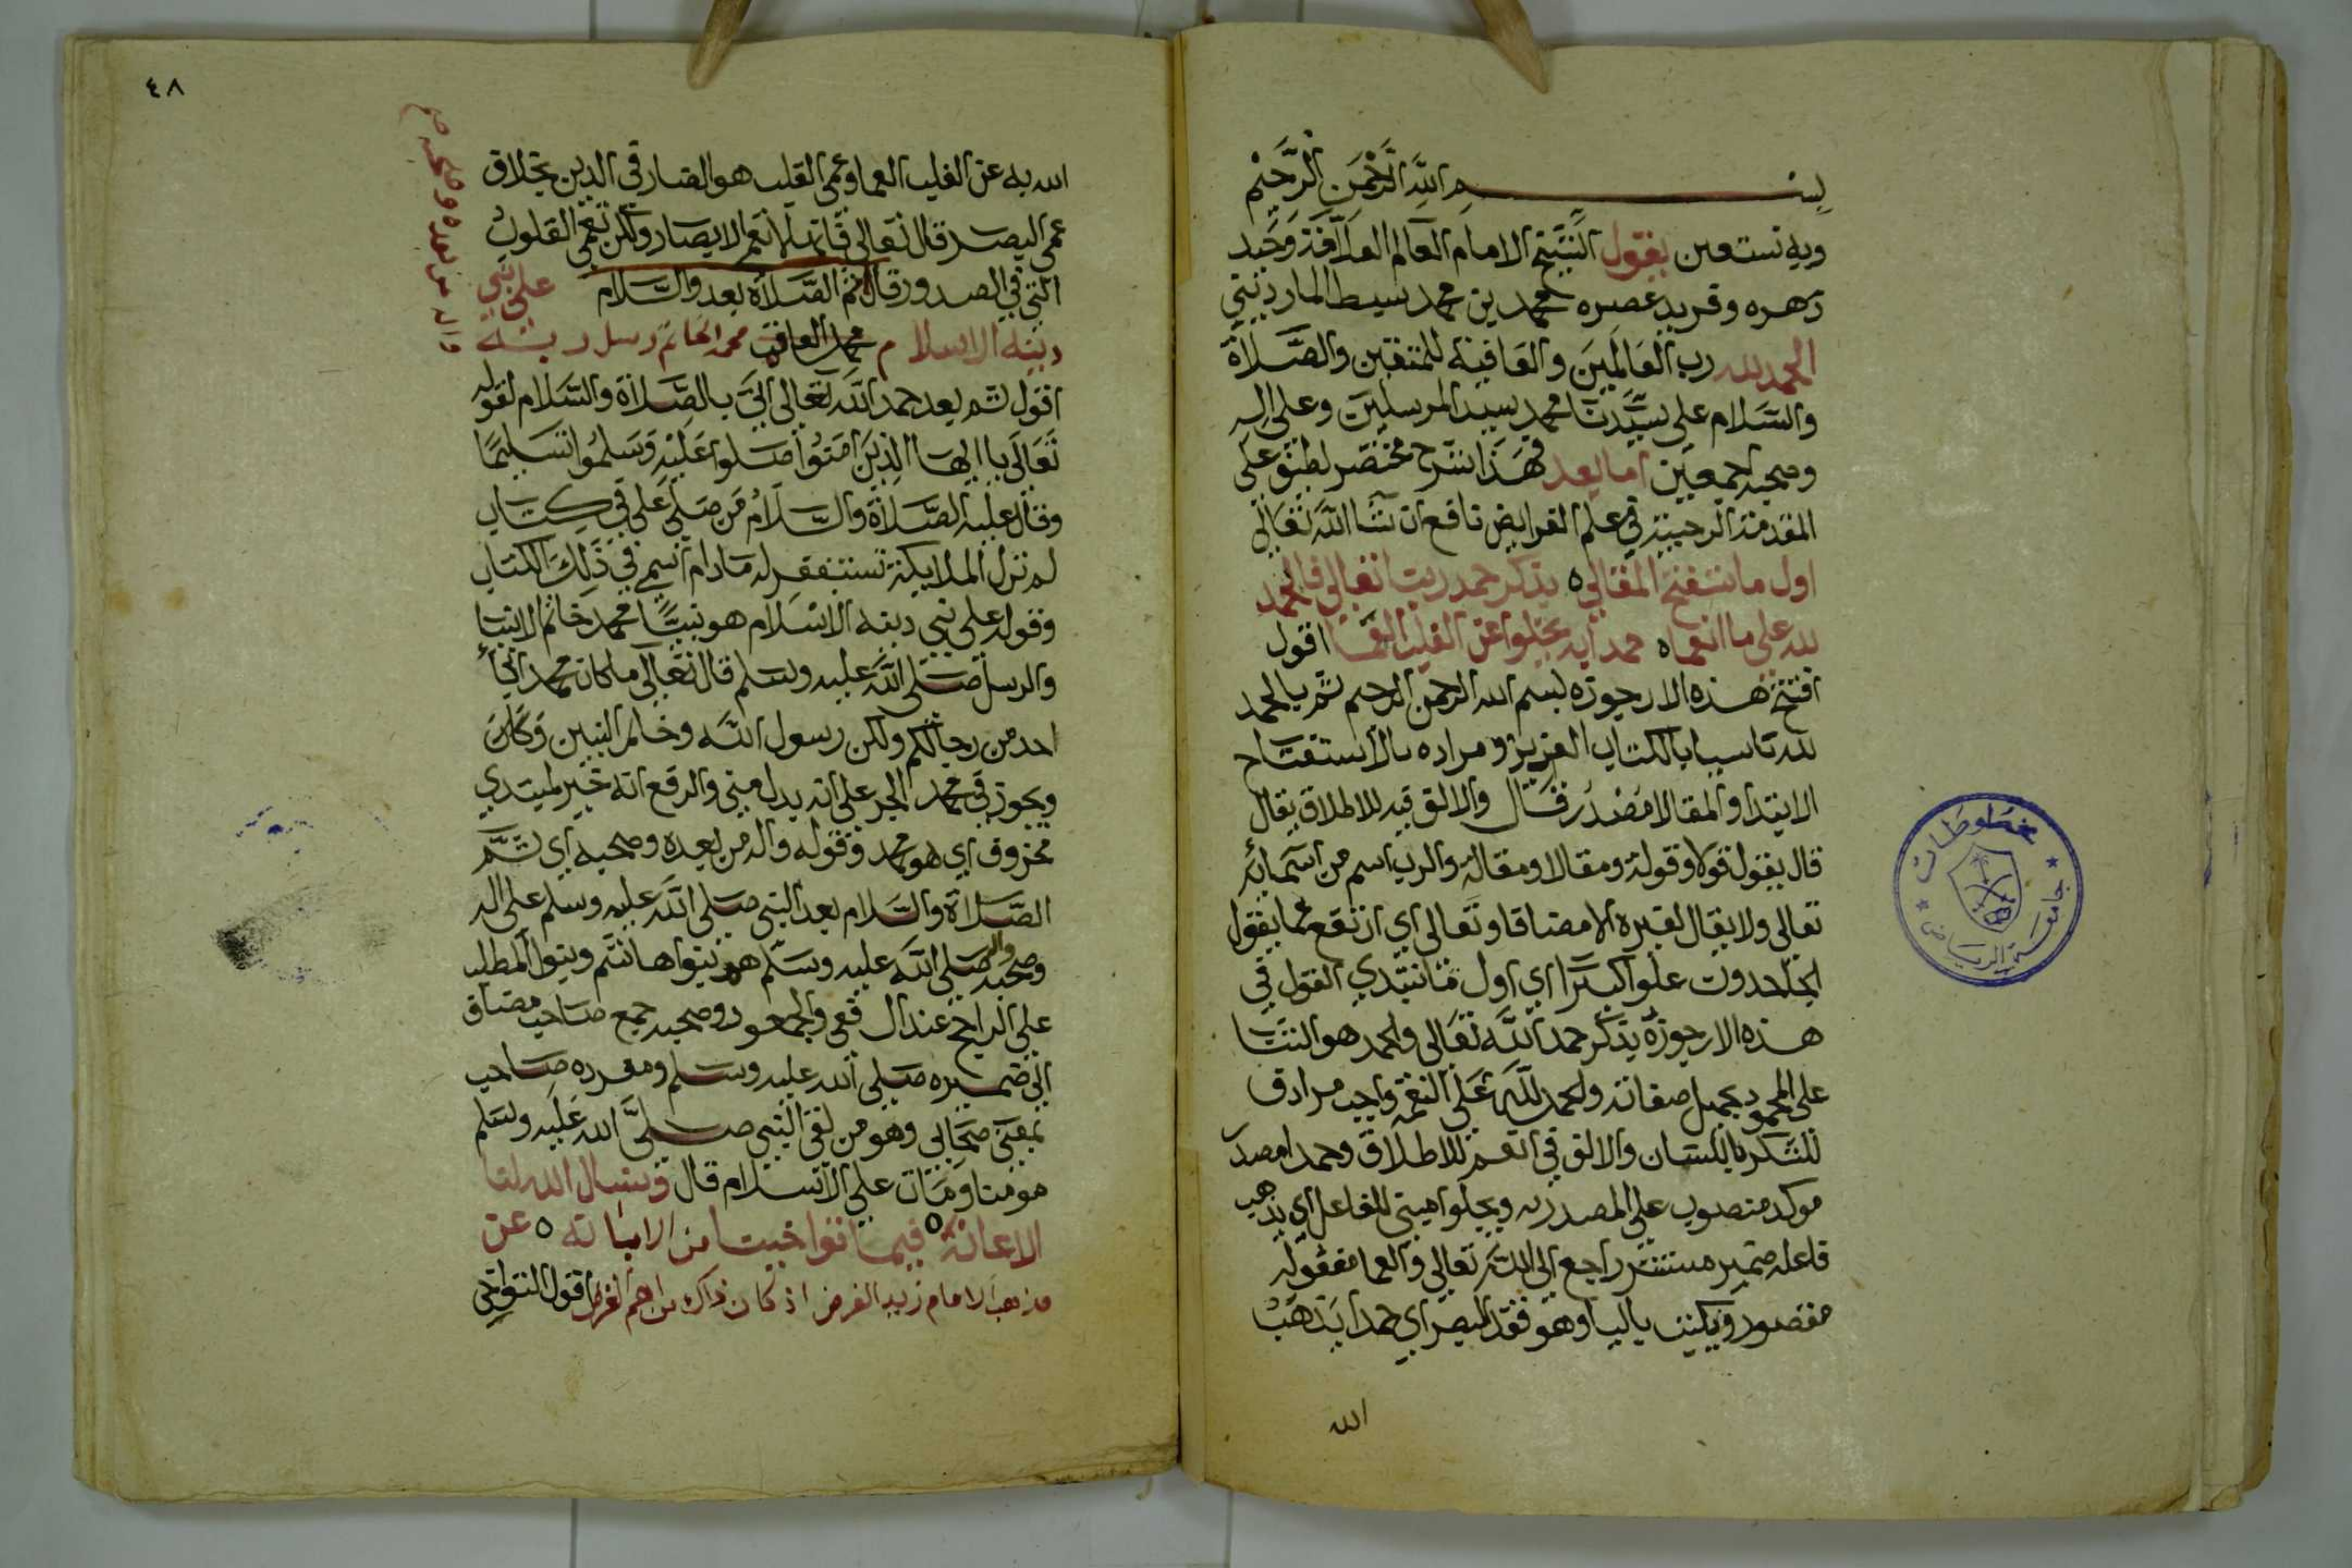 بسم الله الرحمن الرحيم
وبه نستعين يقول الشيخ الامام العالم العلامة وحيد
دهره وفريد عصره محمد بن محمد سبط المارديني
الحمد لله رب العالمين والعاقبة للمتقين والصلاة
والسلام على سيدنا محمد سيد المرسلين وعلى اله
وصحبه اجمعين اما بعد فهذا شرح مختصر لطيف على
المقدمة الرحبية في علم الفرايض نافع ان شا الله تعالى
اول ما نستفتح المقالا ه بذكر حمد ربنا تعالى فالحمد
لله على ما انعما ه حمدا به يجلوا عن القلب العما اقول
افتتح هذه الارجوزه ببسم الله الرحمن الرحيم ثم بالحمد
لله تاسيا بالكتاب العزيز ومراده بالاستفتاح
الابتدا والمقالا مصدر قال والالف فيه للاطلاق يقال
قال يقول قولا وقولة ومقالا ومقالة والرب اسم من اسمائه
تعالى ولا يقال لغيره الا مضافا وتعالى اي ارتفع عما يقول
الجاحدون علوا كبيرا اي اول ما نبتدي القول في
هذه الارجوزة بذكر حمد الله تعالى والحمد هو الثنا
على المحمود بجميل صفاته والحمد لله على النعمة واجب مرادف
للشكر باللسان والالف في انعما للاطلاق وحمدا مصدر
موكد منصوب على المصدريه ويجلوا مبني للفاعل اي يذهب
فاعله ضمير مستتر راجع الى الله تعالى والعما مفعوله
مقصور ويكتب باليا وهو فقد البصر اي حمدا يذهب
الله
٤٨
الله به عن القلب العما وعمى القلب هو الضار في الدين بخلاف
عمى البصر قال تعالى فانها لا تعمى الابصار ولكن تعمى القلوب
التي في الصدور قال ثم الصلاة بعد والسلام على نبي
دينه الاسلام محمد العاقب محمد الخاتم رسل ربه
واله من بعده وصحبه
اقول ثم بعد حمد الله تعالى اتى بالصلاة والسلام لقوله
تعالى يا ايها الذين امنوا صلوا عليه وسلموا تسليما
وقال عليه الصلاة والسلام من صلى علي في كتاب
لم تزل الملايكة تستغفر له ما دام اسمي في ذلك الكتاب
وقوله على نبي دينه الاسلام هو نبينا محمد خاتم الانبيا
والرسل صلى الله عليه وسلم قال تعالى ما كان محمد ابا
احد من رجالكم ولكن رسول الله وخاتم النبيين وكان
ويجوز في محمد الجر على انه بدل من نبي والرفع انه خبر لمبتدي
محذوف اي هو محمد وقوله واله من بعده وصحبه اي ثم
الصلاة والسلام بعد النبي صلى الله عليه وسلم على اله
وصحبه واله صلى الله عليه وسلم هم بنوا هاشم وبنوا المطلب
على الراجح عند الشافعي والجمهور وصحبه جمع صاحب مضاف
الى ضميره صلى الله عليه وسلم ومفرده صاحب
بمعنى صحابي وهو من لقي النبي صلى الله عليه وسلم
مومنا ومات على الاسلام قال ونسال الله لنا
الاعانة ه فيما توا خينا من الابانه ه عن
مذهب الامام زيد الفرض اذ كان ذاك من اهم الغرض اقول التواخي
مخطوطات
جامعة الرياض